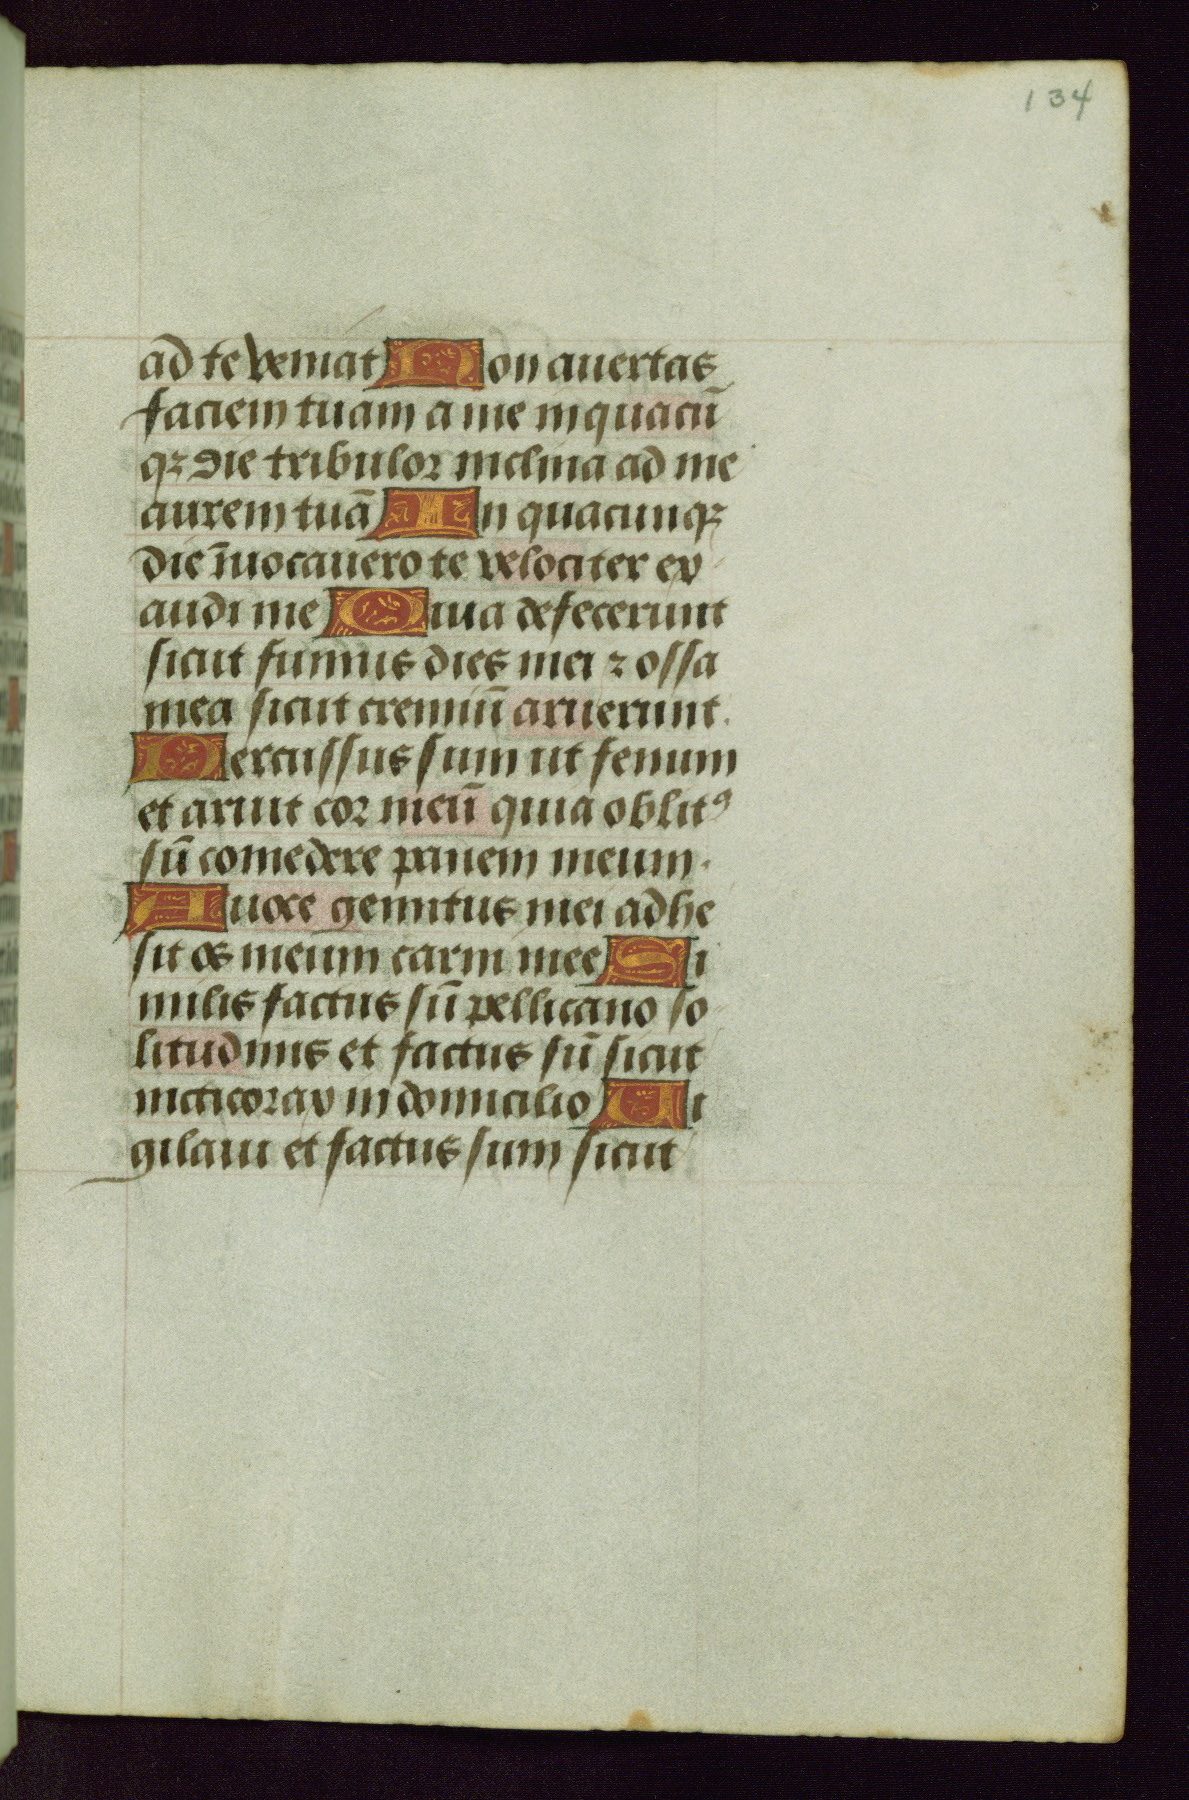 134
ad te veniat Non auertas
faciem tuam a me in quacū
qꝫ die tribulor inclina ad me
aurem tuā In quacunqꝫ
die īuocauero te velociter ex
audi me Quia defecerunt
sicut fumus dies mei ⁊ ossa
mea sicut cremiū aruerunt.
Percussus sum ut fenum
et aruit cor meū quia oblitꝰ
sū comedere panem meum.
A uoce gemitus mei adhe
sit os meum carni mee Si
milis factus sū pellicano so
litudinis et factus sū sicut
nicticorax in domicilio Ui
gilaui et factus sum sicut